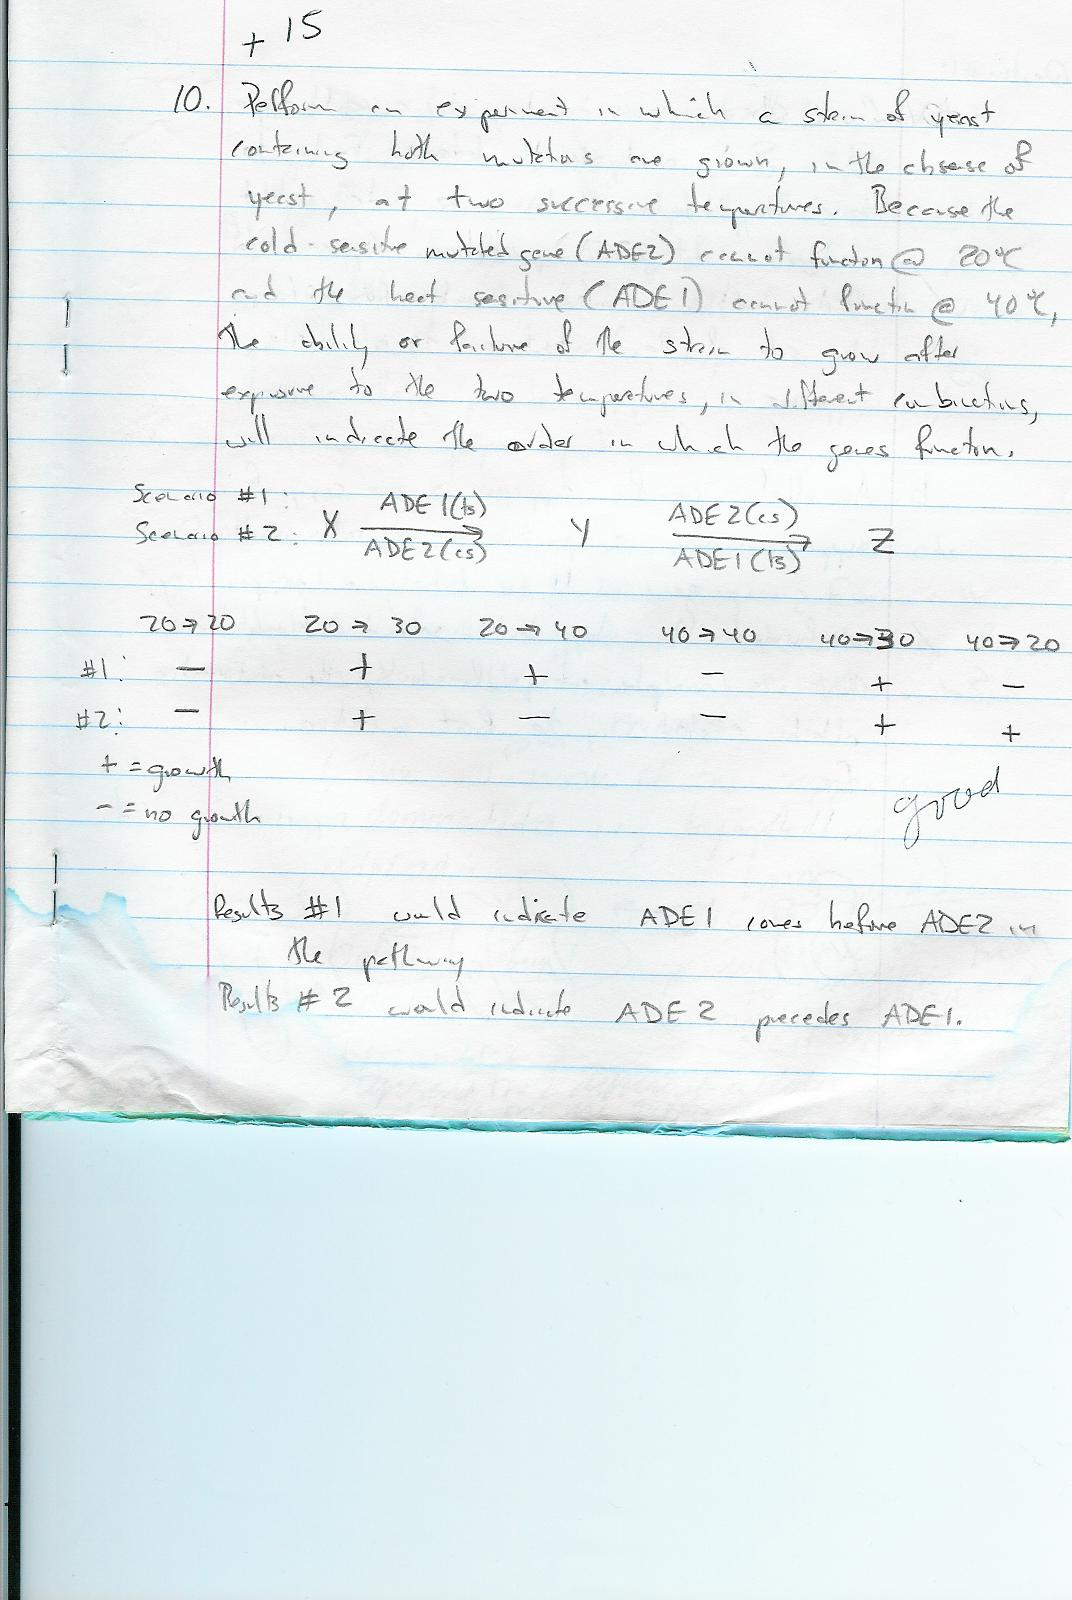 + 15
10. Perform an experiment in which a strain of yeast
containing both mutations are grown, in the absense of
yeast, at two successive temperatures. Because the
cold-sensitive mutated gene (ADE2) cannot function @ 20°C
and the heat sesitive (ADE1) cannot function @ 40°C,
the ability or failure of the strain to grow after
exposure to the two temperatures, in different combinations,
will indicate the order in which the genes function.
Scenario #1: ADE1(ts) ADE2(cs)
Scenario #2: X → Y → Z
ADE2(cs) ADE1(ts)
20→20 20→30 20→40 40→40 40→30 40→20
#1: − + + − + −
#2: − + − − + +
+ = growth
− = no growth
good
Results #1 would indicate ADE1 comes before ADE2 in
the pathway
Results #2 would indicate ADE2 precedes ADE1.